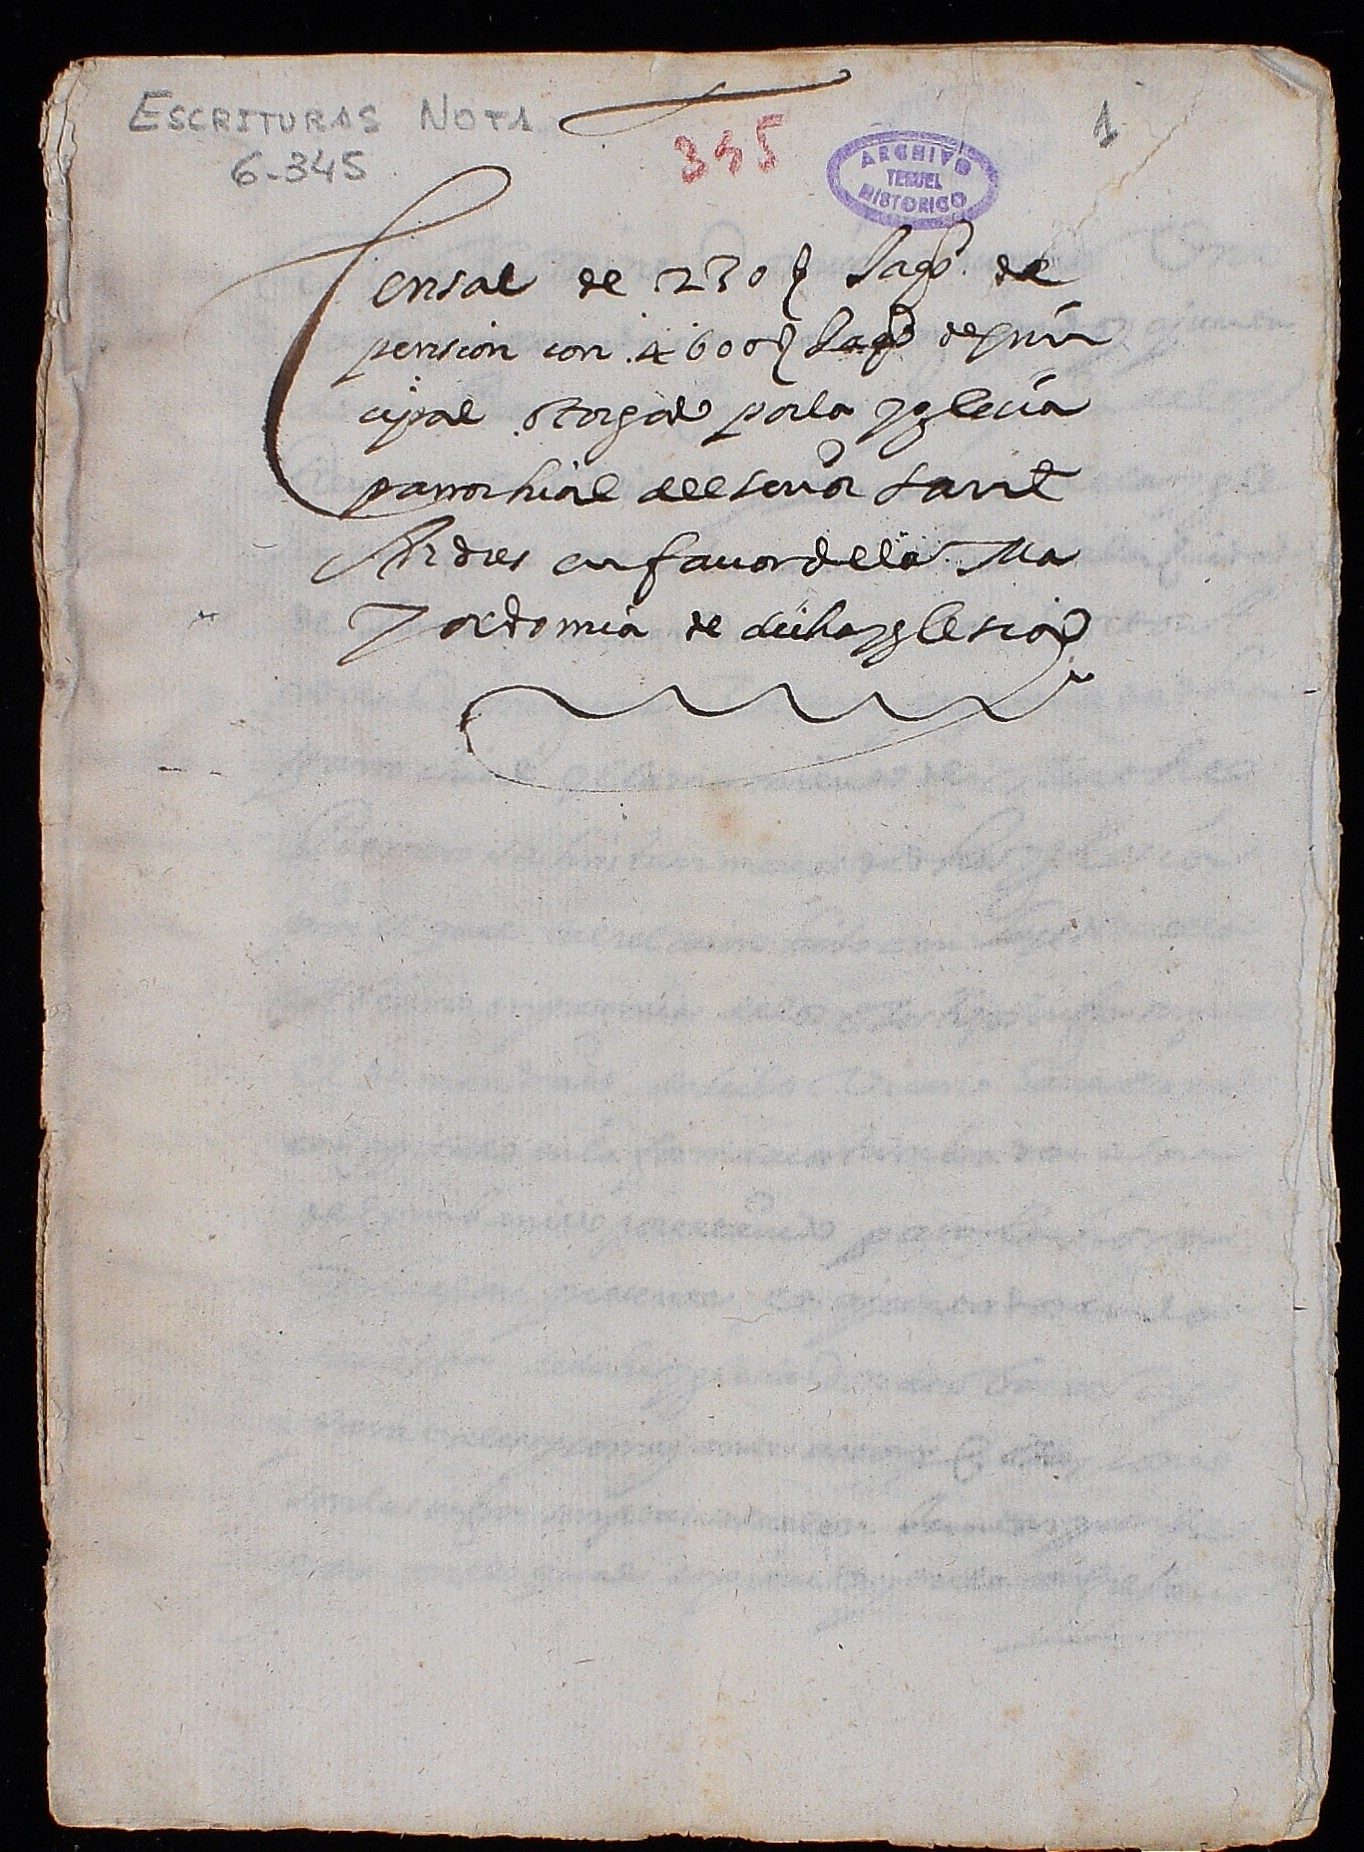 ESCRITURAS NOTA
6-345
345
ARCHIVO
TERUEL
HISTORICO
1
Censal de 230 ſ Jaqs. de
pension con 4600 ſ Jaqs de prin
cipal otorgado por la yglesia
parrochial del señor sant
Andres en fauor de la Ma
yordomia de dicha yglesia